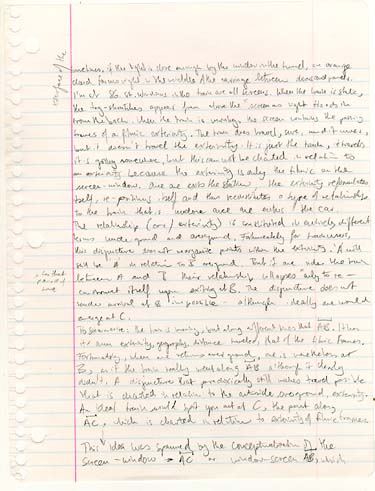 sometimes, if the light is close enough by the window in the tunnel, an orange
cloud forms right in the middle of the carriage between doors and panels.
I'm at 86 st. windows in the train are all screens. When the train is stable,
the long-stretches appear from above the screen as light floods in
from the back. When the train is moving, the screen contains the passing
frames of a filmic exteriority. The train does travel, sure, and it moves,
but it doesn't travel the exteriority. It is just the train, it travels
it is going somewhere, but this can only be charted in relation to
an exteriority because the exteriority is only the filmic on the
screen-window. Once one exits the station, the exteriority reformulates
itself, re-positions itself and then reconstitutes a type of relationship
to the train that is undone once one enters the car.
The relationship (car/exteriority) is constituted in entirely different
terms underground and overground. Fortunately for travellers,
this disjuncture does not reorganise points within the exteriority: A will
still be A in relation to B overground. But if one rides the train
between A and B their relationship collapses only to re-
construct itself upon exiting at B. The disjuncture does not
render arrival at B impossible – although ideally one would
emerge at C.
To summarise: the train is moving, but along a different line than AB. It has
its own exteriority, geography, distance traveled, that of the filmic frames.
Fortunately, when one returns overground, one is nonetheless at
B, as if the train really went along AB although it clearly
didn't. A disjuncture that paradoxically still makes travel possible
that is charted in relation to the outside overground exteriority.
An ideal train would spit you out at C, the point along
AC, which is charted in relation to exteriority of filmic frames.
This idea was spawned by the conceptualisation of the
screen-window → AC or window-screen AB, which
surface of the
for that
period of
time